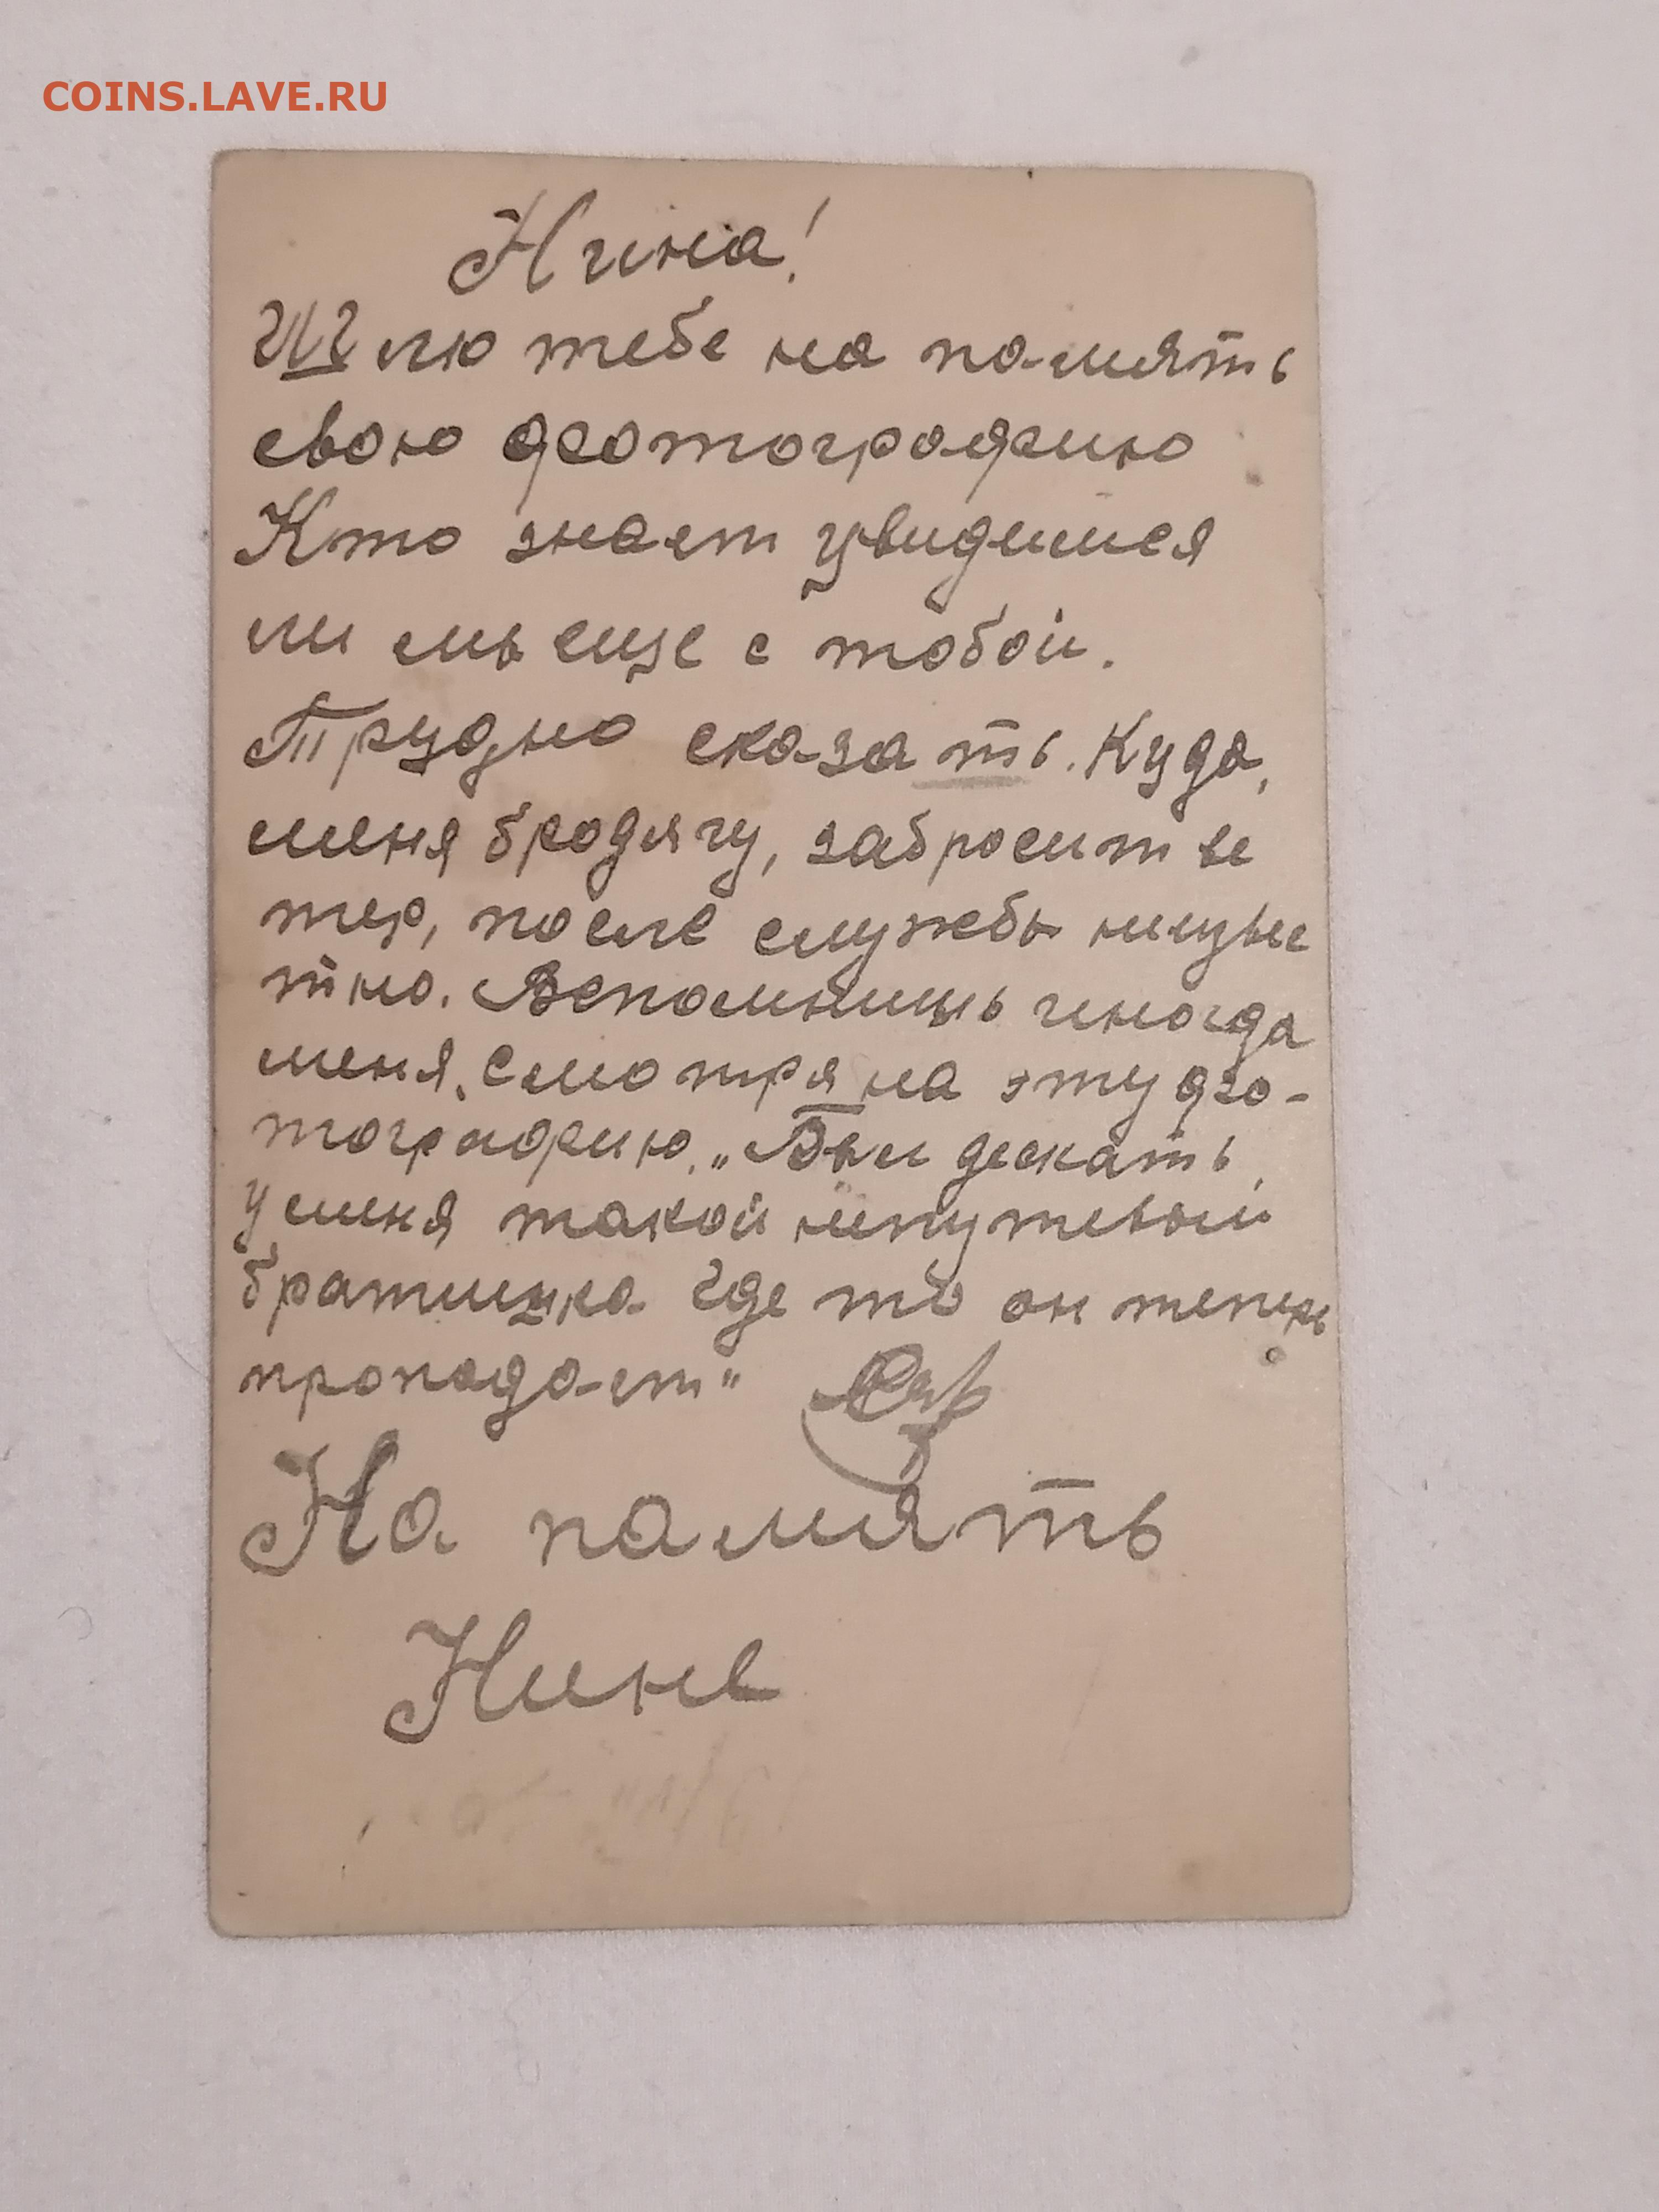 COINS.LAVE.RU
Нина!
Шлю тебе на память
свою фотографию
Кто знает увидемся
ли мы еще с тобой.
Трудно сказать. Куда,
меня бродягу, забросит ве
тер, после службы неизвес
тно. Вспомнишь иногда
меня, смотря на эту фо-
тографию. „Был дескать,
у меня такой непутевый
братишка где то он теперь
пропадает"
На память
Нине